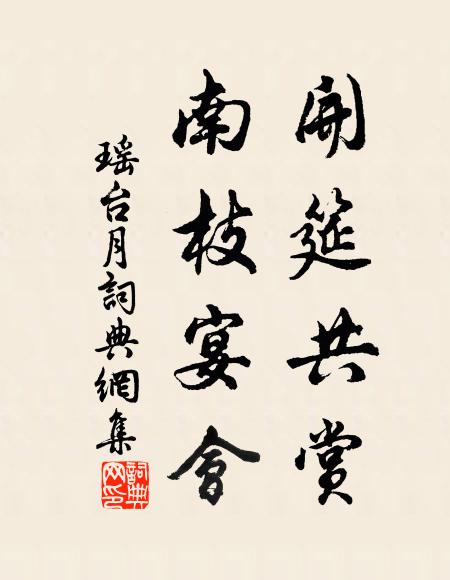 開筵共賞
南枝宴會
瑶台月詞典網集
詞典
网印